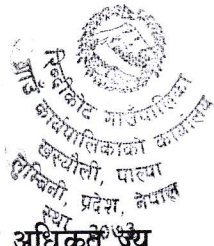 रिब्दीकोट गाउँपालिका
गाउँ कार्यपालिकाको कार्यालय
खस्यौली, पाल्पा
लुम्बिनी, प्रदेश, नेपाल
अधिकृत